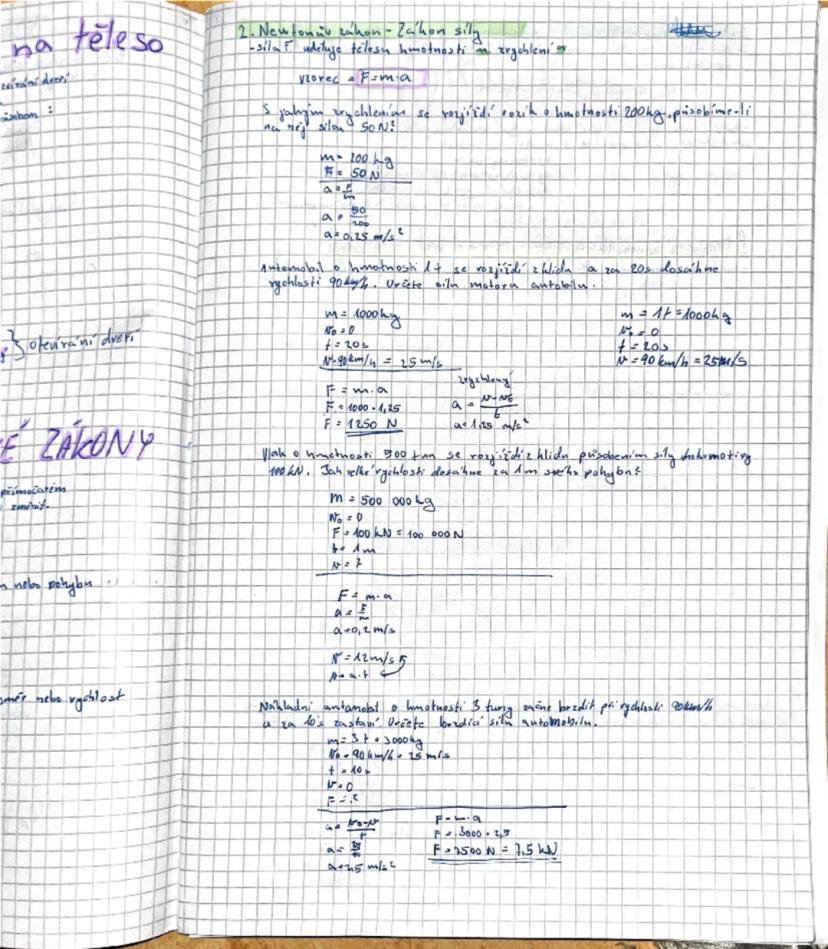 na těleso
zavírání dveří
:
} otevírání dveří
É ZÁKONY
přímočarém
změnit.
nebo pohybu
směr nebo rychlost
2. Newtonův zákon - Zákon síly
- síla F uděluje tělesu hmotnosti m zrychlení a
vzorec = F = m · a
S jakým zrychlením se rozjíždí vozík o hmotnosti 200 kg, působíme-li
na něj silou 50 N?
m = 200 kg
F = 50 N
a = F/m
a = 50/200
a = 0,25 m/s²
Automobil o hmotnosti 1 t se rozjíždí z klidu a za 20 s dosáhne
rychlosti 90 km/h. Určete sílu motoru autobilu.
m = 1000 kg
v₀ = 0
t = 20 s
v = 90 km/h = 25 m/s
m = 1 t = 1000 kg
v₀ = 0
t = 20 s
v = 90 km/h = 25 m/s
F = m · a
F = 1000 · 1,25
F = 1250 N
zrychlený
a = v - v₀/t
a = 1,25 m/s²
Vlak o hmotnosti 500 tun se rozjíždí z klidu působením síly lokomotivy
100 kN. Jak velké rychlosti dosáhne za 1 m svého pohybu?
m = 500 000 kg
v₀ = 0
F = 100 kN = 100 000 N
t = 1 m
v = ?
F = m · a
a = F/m
a = 0,2 m/s
v = 12 m/s
v = a · t
Nákladní automobil o hmotnosti 3 tuny začne brzdit při rychlosti 90 km/h
a za 10 s zastaví. Určete brzdící sílu automobilu.
m = 3 t = 3000 kg
v₀ = 90 km/h = 25 m/s
t = 10 s
v = 0
F = ?
a = v₀ - v/t
a = 25/10
a = 2,5 m/s²
F = m · a
F = 3000 · 2,5
F = 7500 N = 7,5 kN